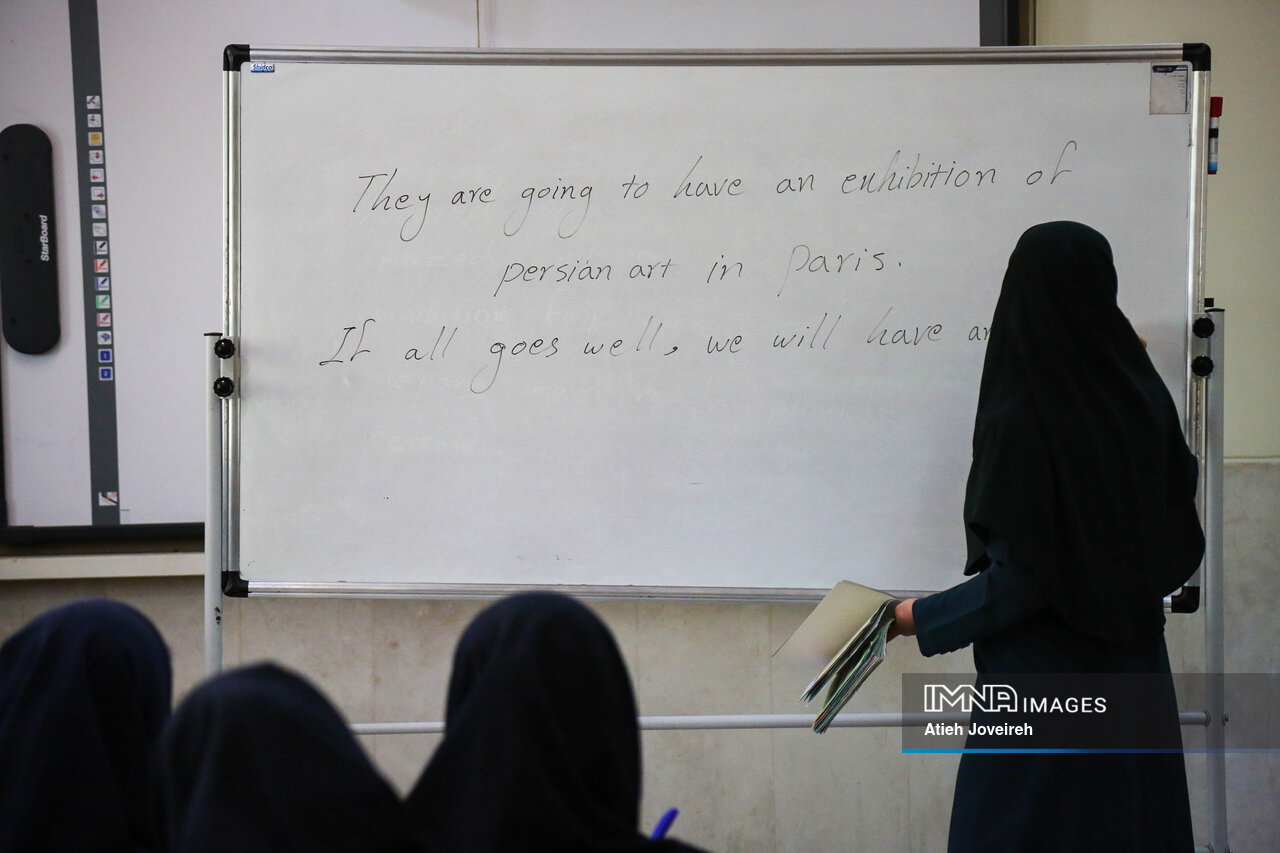 Shidco
They are going to have an exhibition of
persian art in Paris.
If all goes well, we will have an
StarBoard
IMNA IMAGES
Atieh Joveireh